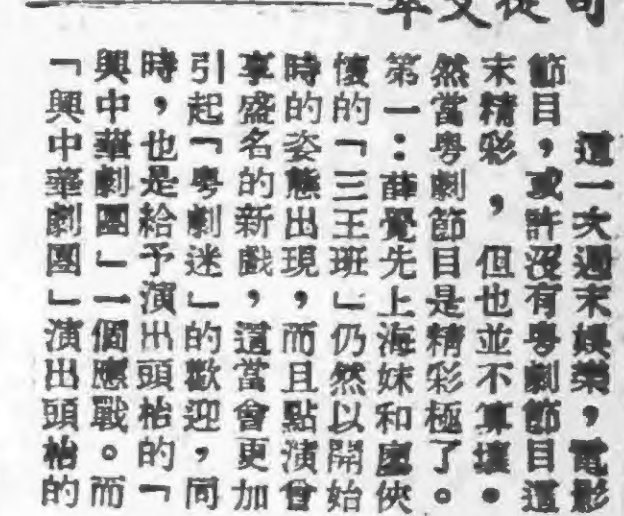 這一次週末娛樂，電影
節目，或許沒有粵劇節目這
末精彩，但也並不算壞。
然當粵劇節目是精彩極了。
第一：薛覺先上海妹和廖俠
懷的「三王班」仍然以開始
時的姿態出現，而且點演曾
享盛名的新戲，這當會更加
引起「粵劇迷」的歡迎，同
時，也是給予演出頭枱的「
興中華劇團」一個應戰。而
「興中華劇團」演出頭枱的